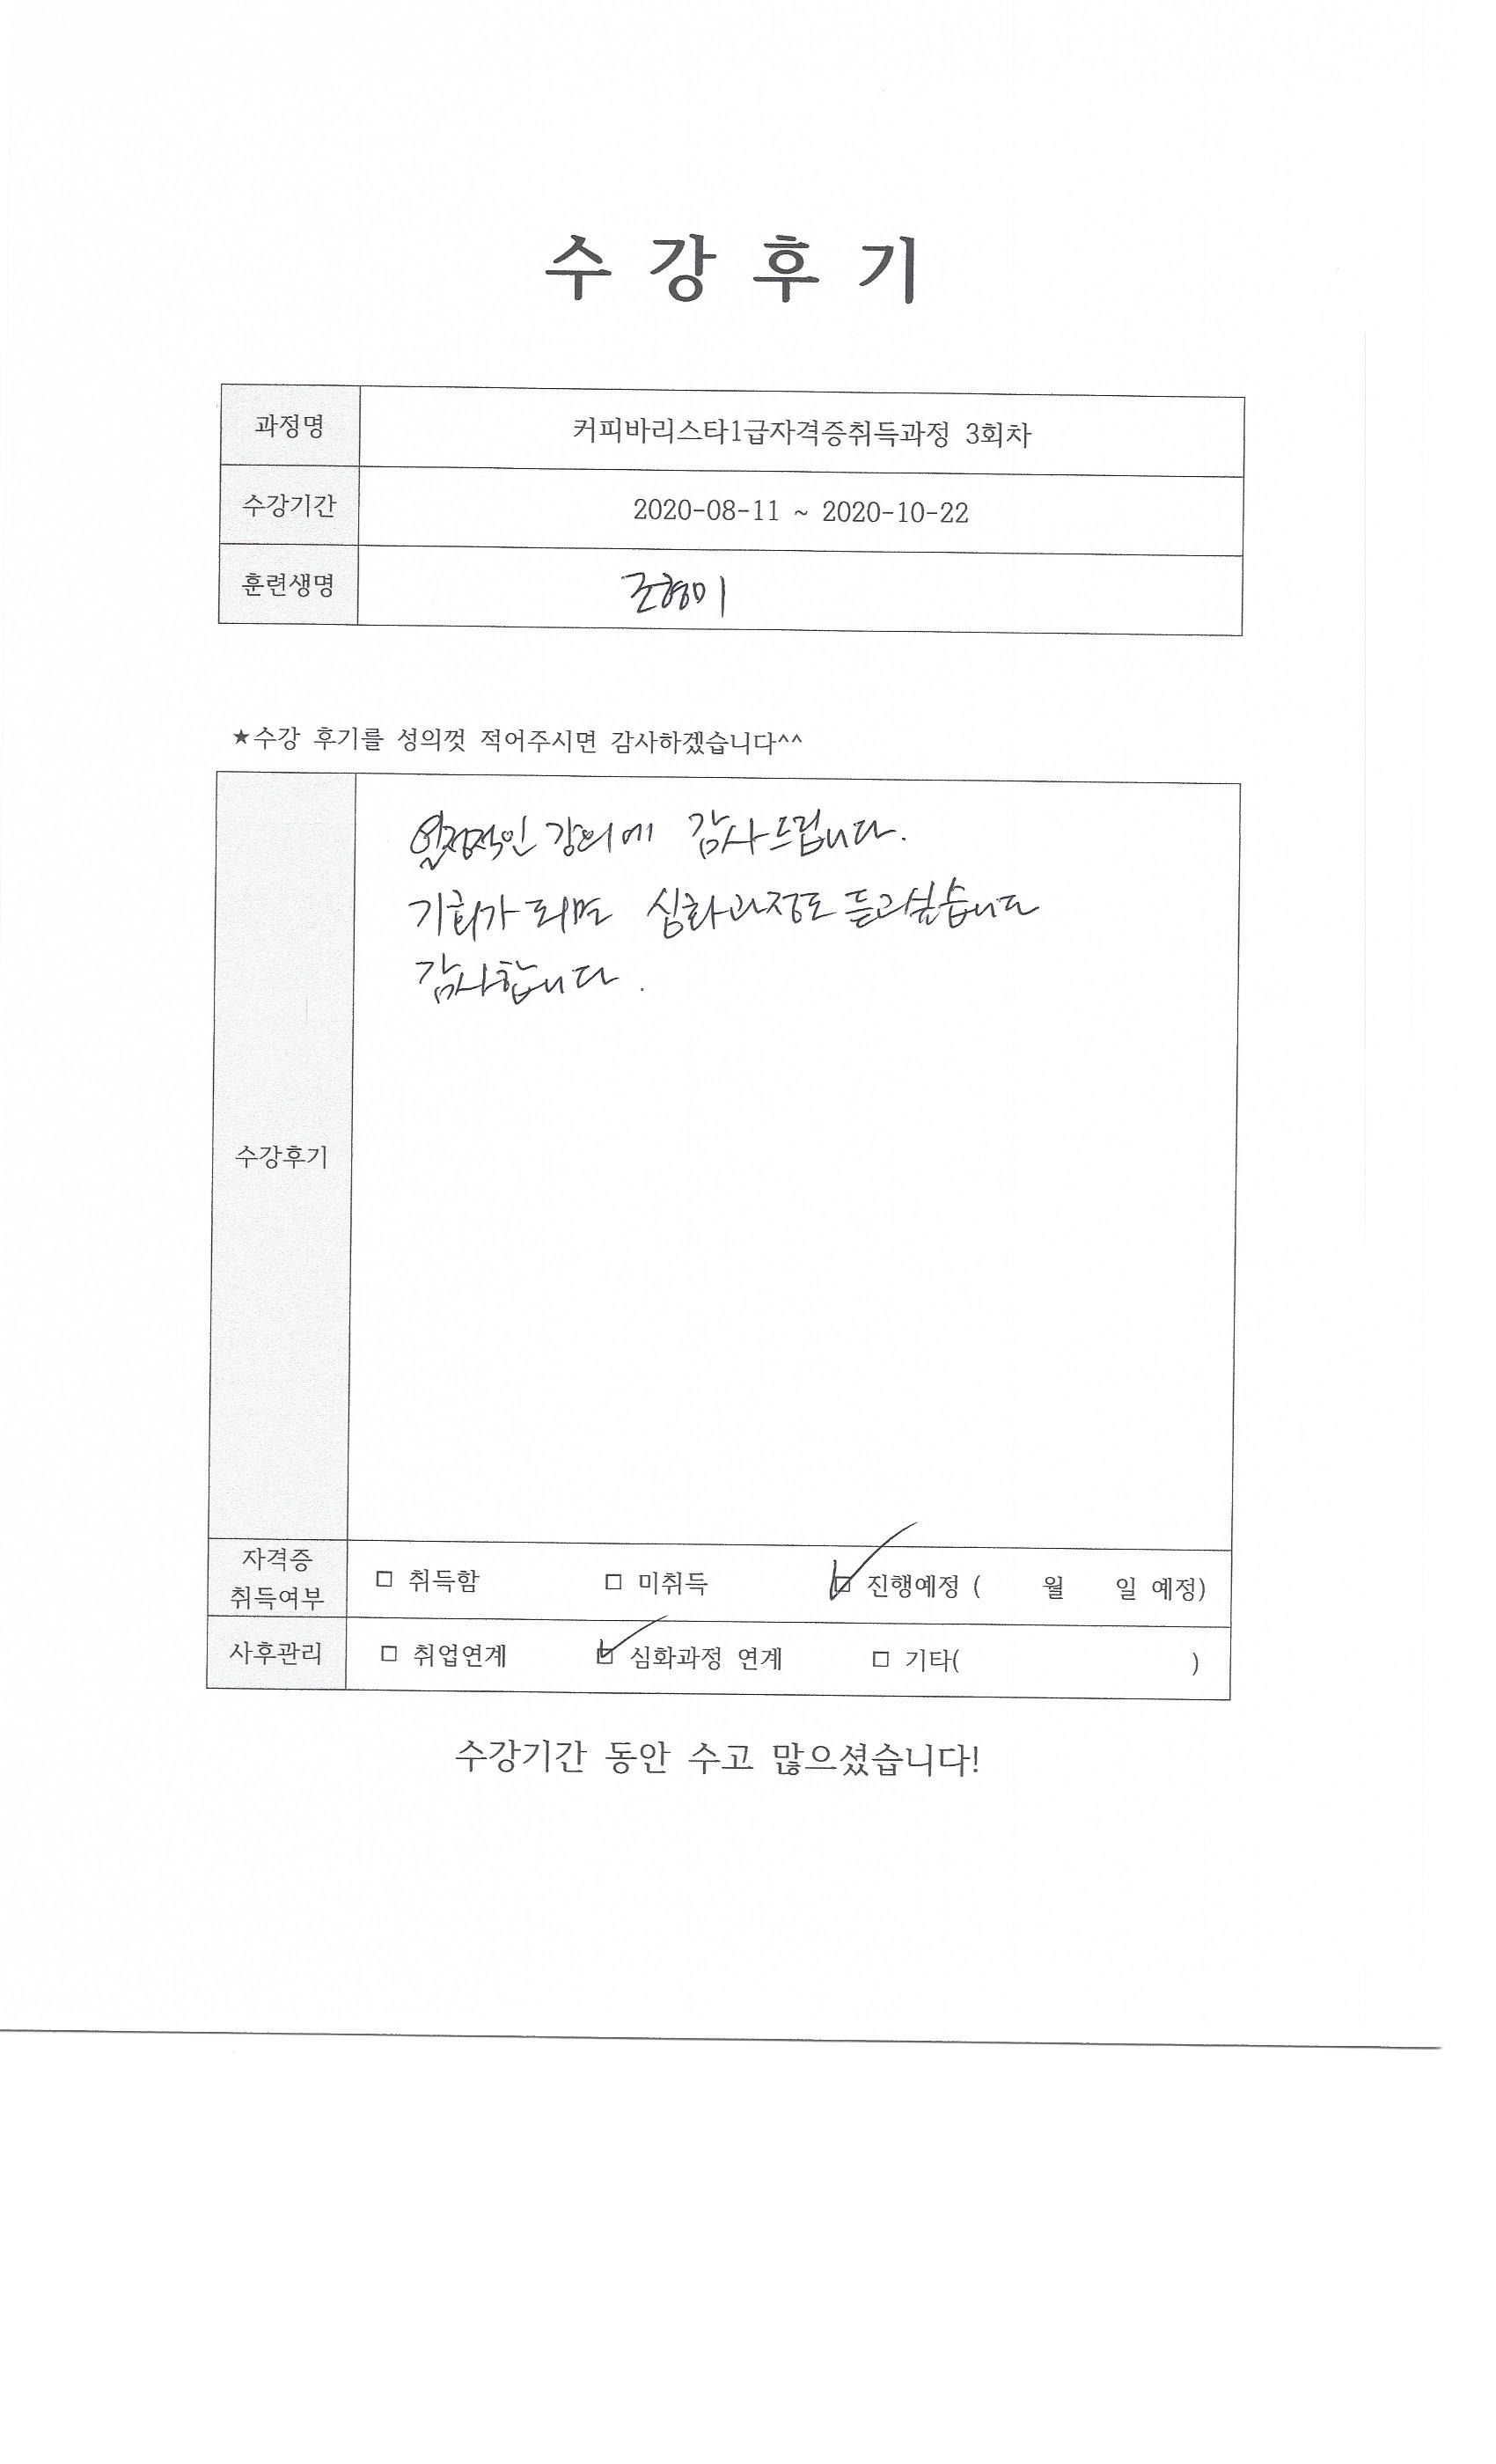 수 강 후 기
과정명 커피바리스타1급자격증취득과정 3회차
수강기간 2020-08-11 ~ 2020-10-22
훈련생명 조형미
★수강 후기를 성의껏 적어주시면 감사하겠습니다^^
열정적인 강의에 감사드립니다.
기회가 되면 심화과정도 듣고싶습니다
감사합니다.
수강후기
자격증
취득여부
□ 취득함 □ 미취득 ☑ 진행예정 ( 월 일 예정)
사후관리 □ 취업연계 ☑ 심화과정 연계 □ 기타( )
수강기간 동안 수고 많으셨습니다!